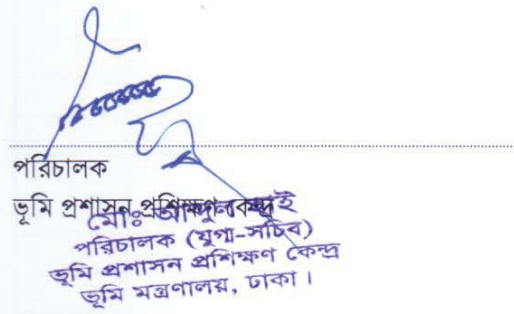 পরিচালক
ভূমি প্রশাসন প্রশিক্ষণ কেন্দ্র
মোঃ আব্দুল হাই
পরিচালক (যুগ্ম-সচিব)
ভূমি প্রশাসন প্রশিক্ষণ কেন্দ্র
ভূমি মন্ত্রণালয়, ঢাকা।